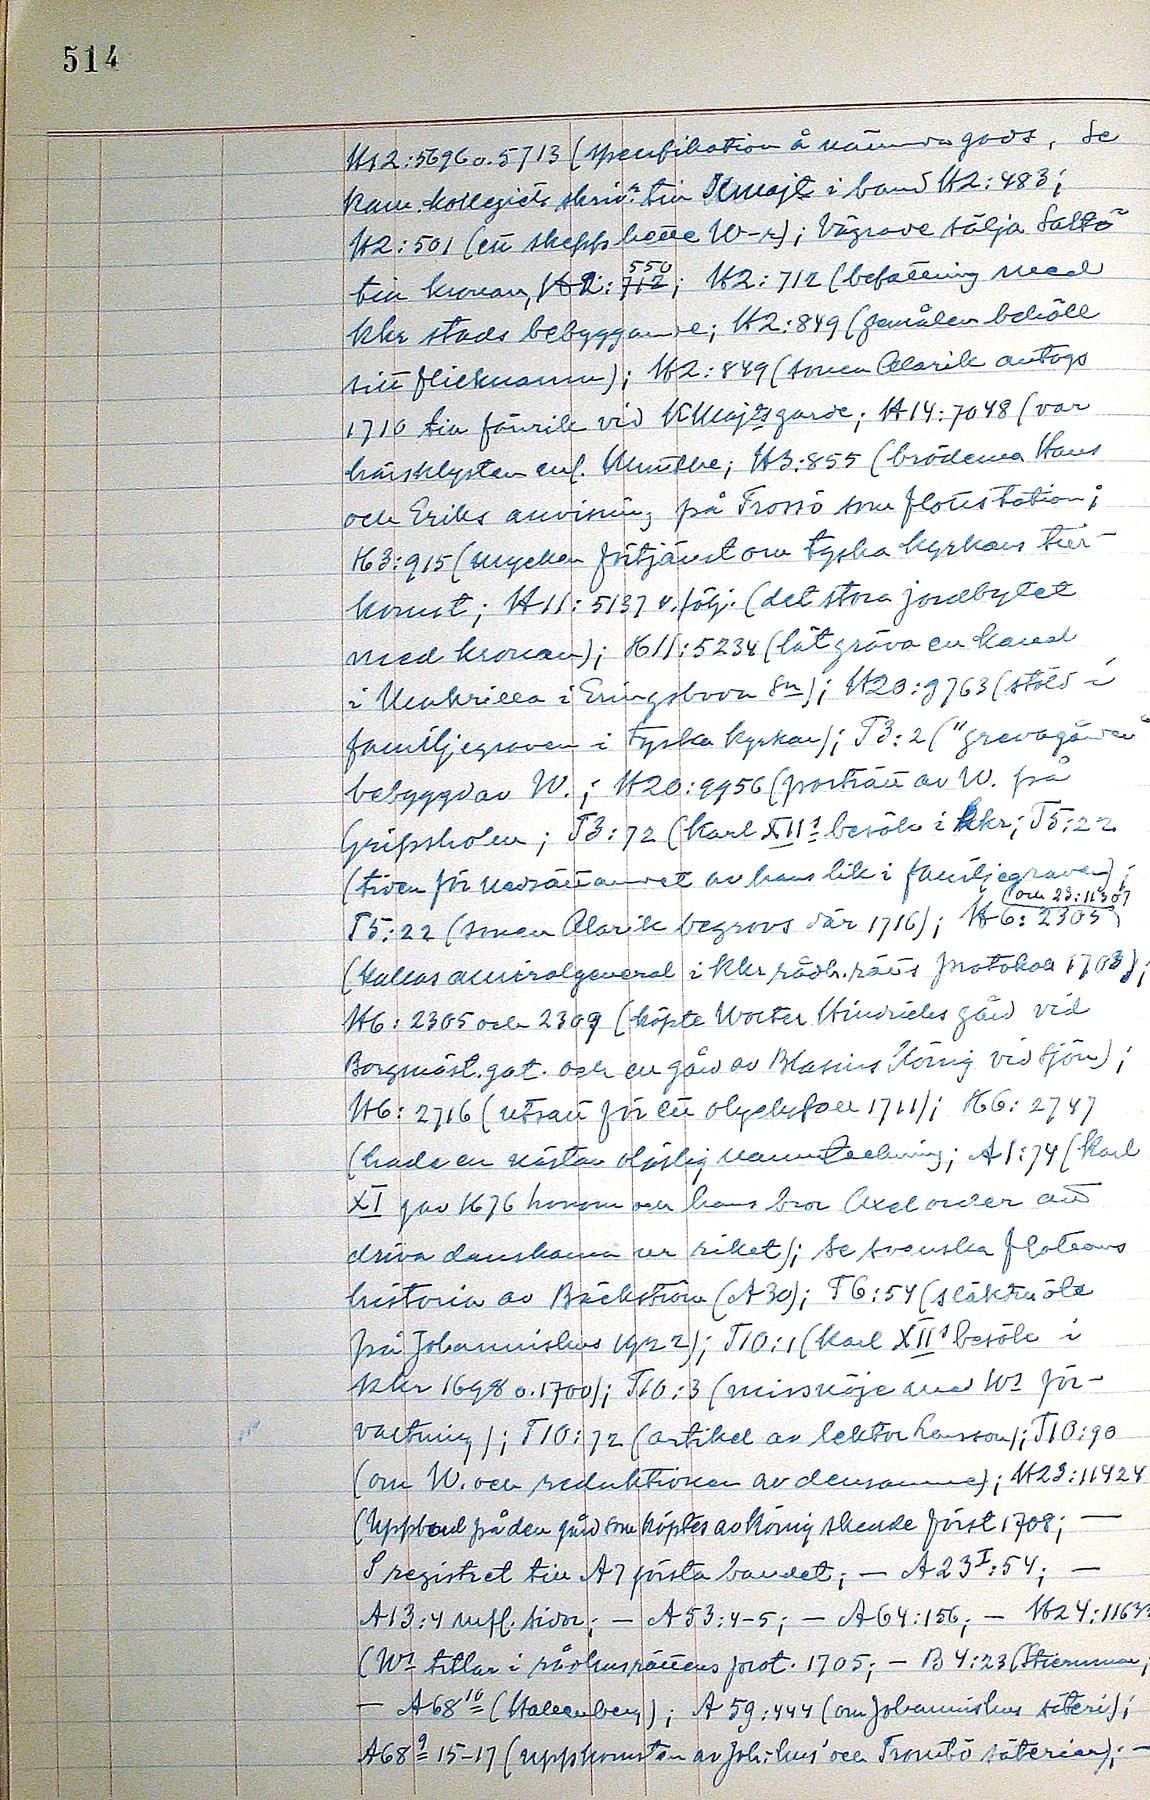 514
H12:5696 o. 5713 (specifikation å nämnda gods, Se
kam. kollegiets skriv:n till KMajt i band H2:483;
H2:501 (ett skepp hette W-r); Vägrade sälja Saltö
till kronan, H2: 712 550; H2:712 (befattning med
kkr stads bebyggande; H2:849 (gemålen behöll
sitt flicknamn); H2:849 (sonen Alarik antogs
1710 till fänrik vid KMajts garde; H14:7048 (var
härsklysten enl. Munthe; H3:855 (bröderna Hans
och Eriks anvisning på Trossö som flottstation;
H3:915 (mycken förtjänst om tyska kyrkans till-
komst; H11:5137 o. följ. (det stora jordbytet
med kronan); H11:5234 (lät gräva en kanal
i i Eringsboda sn); H20:9763 (stöld i
familjegraven i tyska kyrkan); T3:2 ("grevagården"
bebyggd av W.; H20:9956 (porträtt av W. på
Gripsholm; T3:72 (Karl XII:s besök i kkr; T5:22
(tiden för nedsättandet av hans lik i familjegraven);
(och 23:11307
T5:22 (sonen Alarik begrovs där 1716); H6:2305)
(kallas amiralgeneral i kkr rådh.rätts protokoll 1703);
H6:2305 och 2309 (köpte Wolter Hindrichs gård vid
Borgmäst.gat. och en gård av Blasius König vid sjön);
H6:2716 (utsatt för ett olycksfall 1711); H6:2747
(hade en nästan oläslig namnteckning; A1:74 (Karl
XI gav 1676 honom och hans bror Axel order att
driva danskarna ur riket); se svenska flottans
historia av Bäckström (A30); T6:54 (släktmöte
på Johannishus 1922); T10:1 (Karl XII:s besök i
kkr 1698 o. 1700); T10:3 (missnöje med W:s för-
valtning); T10:72 (artikel av lektor Larsson); T10:90
(om W. och reduktionen av densamme); H23:11424
(Uppbud på den gård som köptes av König skedde först 1708; —
S registret till A7 första bandet; — A23I:54; —
A13:4 m.fl. sidor; — A53:4-5; — A64:156; — H24:1163
(W:s titlar i rådhusrättens prot. 1705; — B4:23 (Stiernman;
— A68:10 (Hallenberg); A59:444 (om Johannishus säteri);
A68:9 15-17 (uppkomsten av Joh:hus' och Tromtö säterier); —